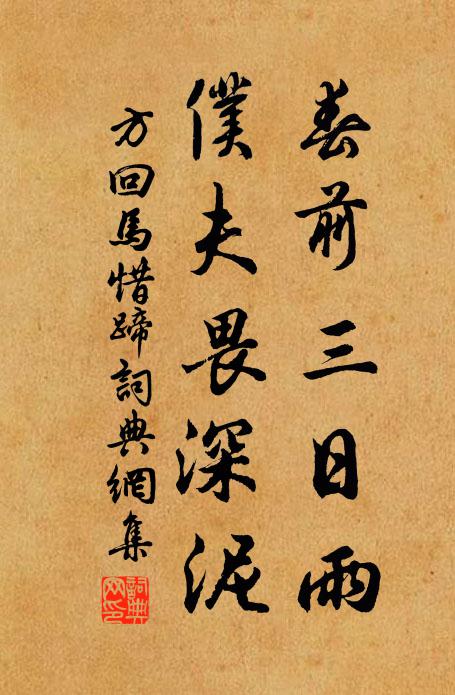 春前三日雨
僕夫畏深泥
方回馬惜蹄詞典網集
詞典網印